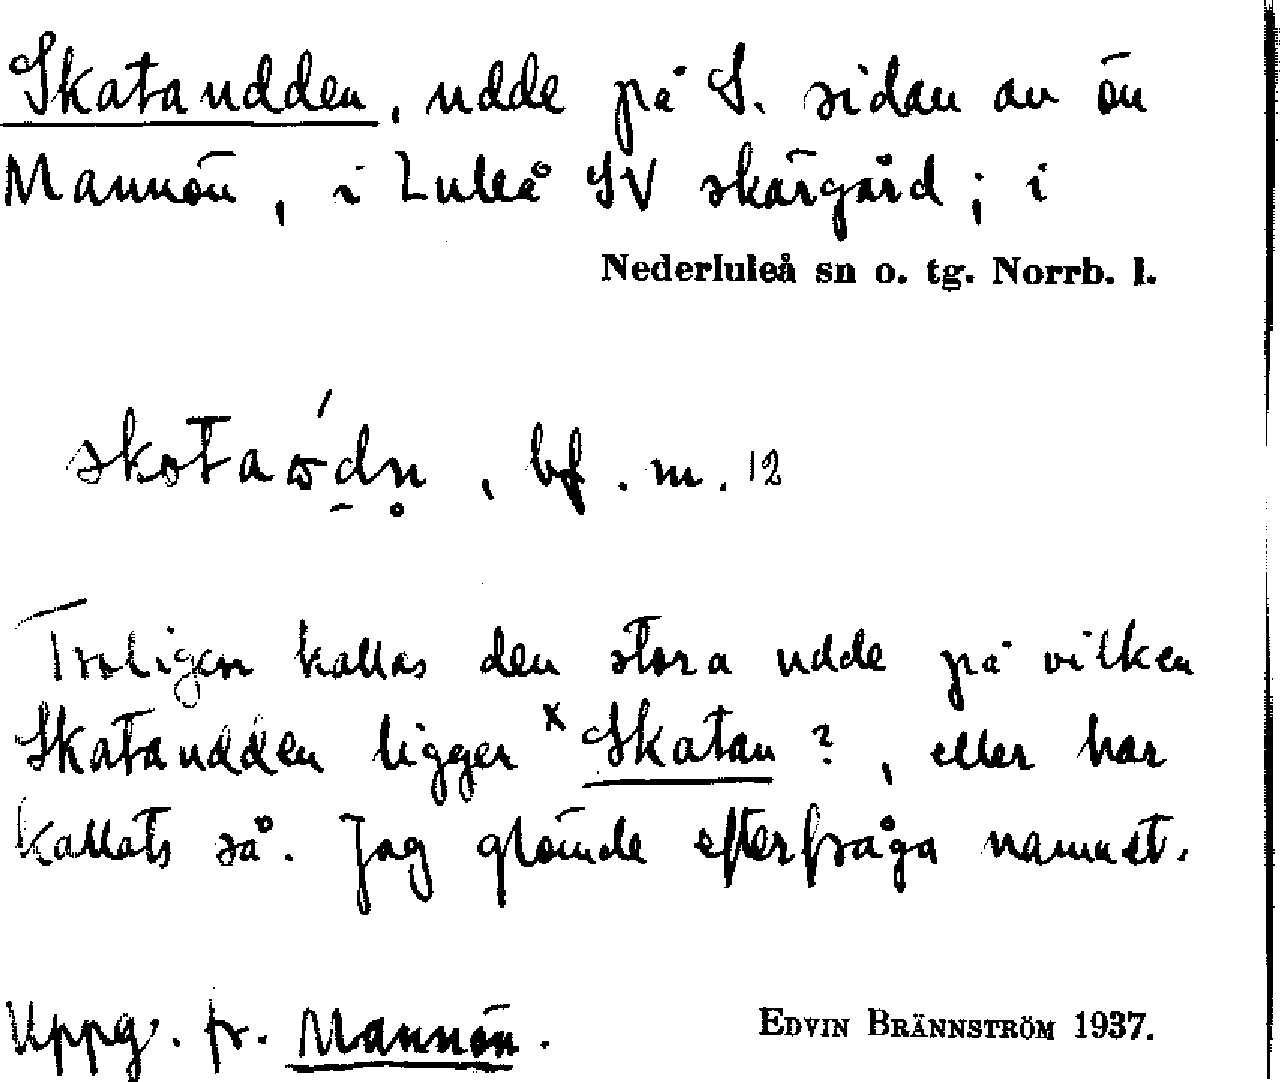 Skataudden, udde på S. sidan av ön
Mannön, i Luleå SV skärgård; i
Nederluleå sn o. tg. Norrb. l.
bf. m. 12
Troligen kallas den stora udde på vilken
Skataudden ligger x Skatan ?, eller har
kallats så. Jag glömde efterfråga namnet.
Uppg. fr. Mannön.
EDVIN BRÄNNSTRÖM 1937.